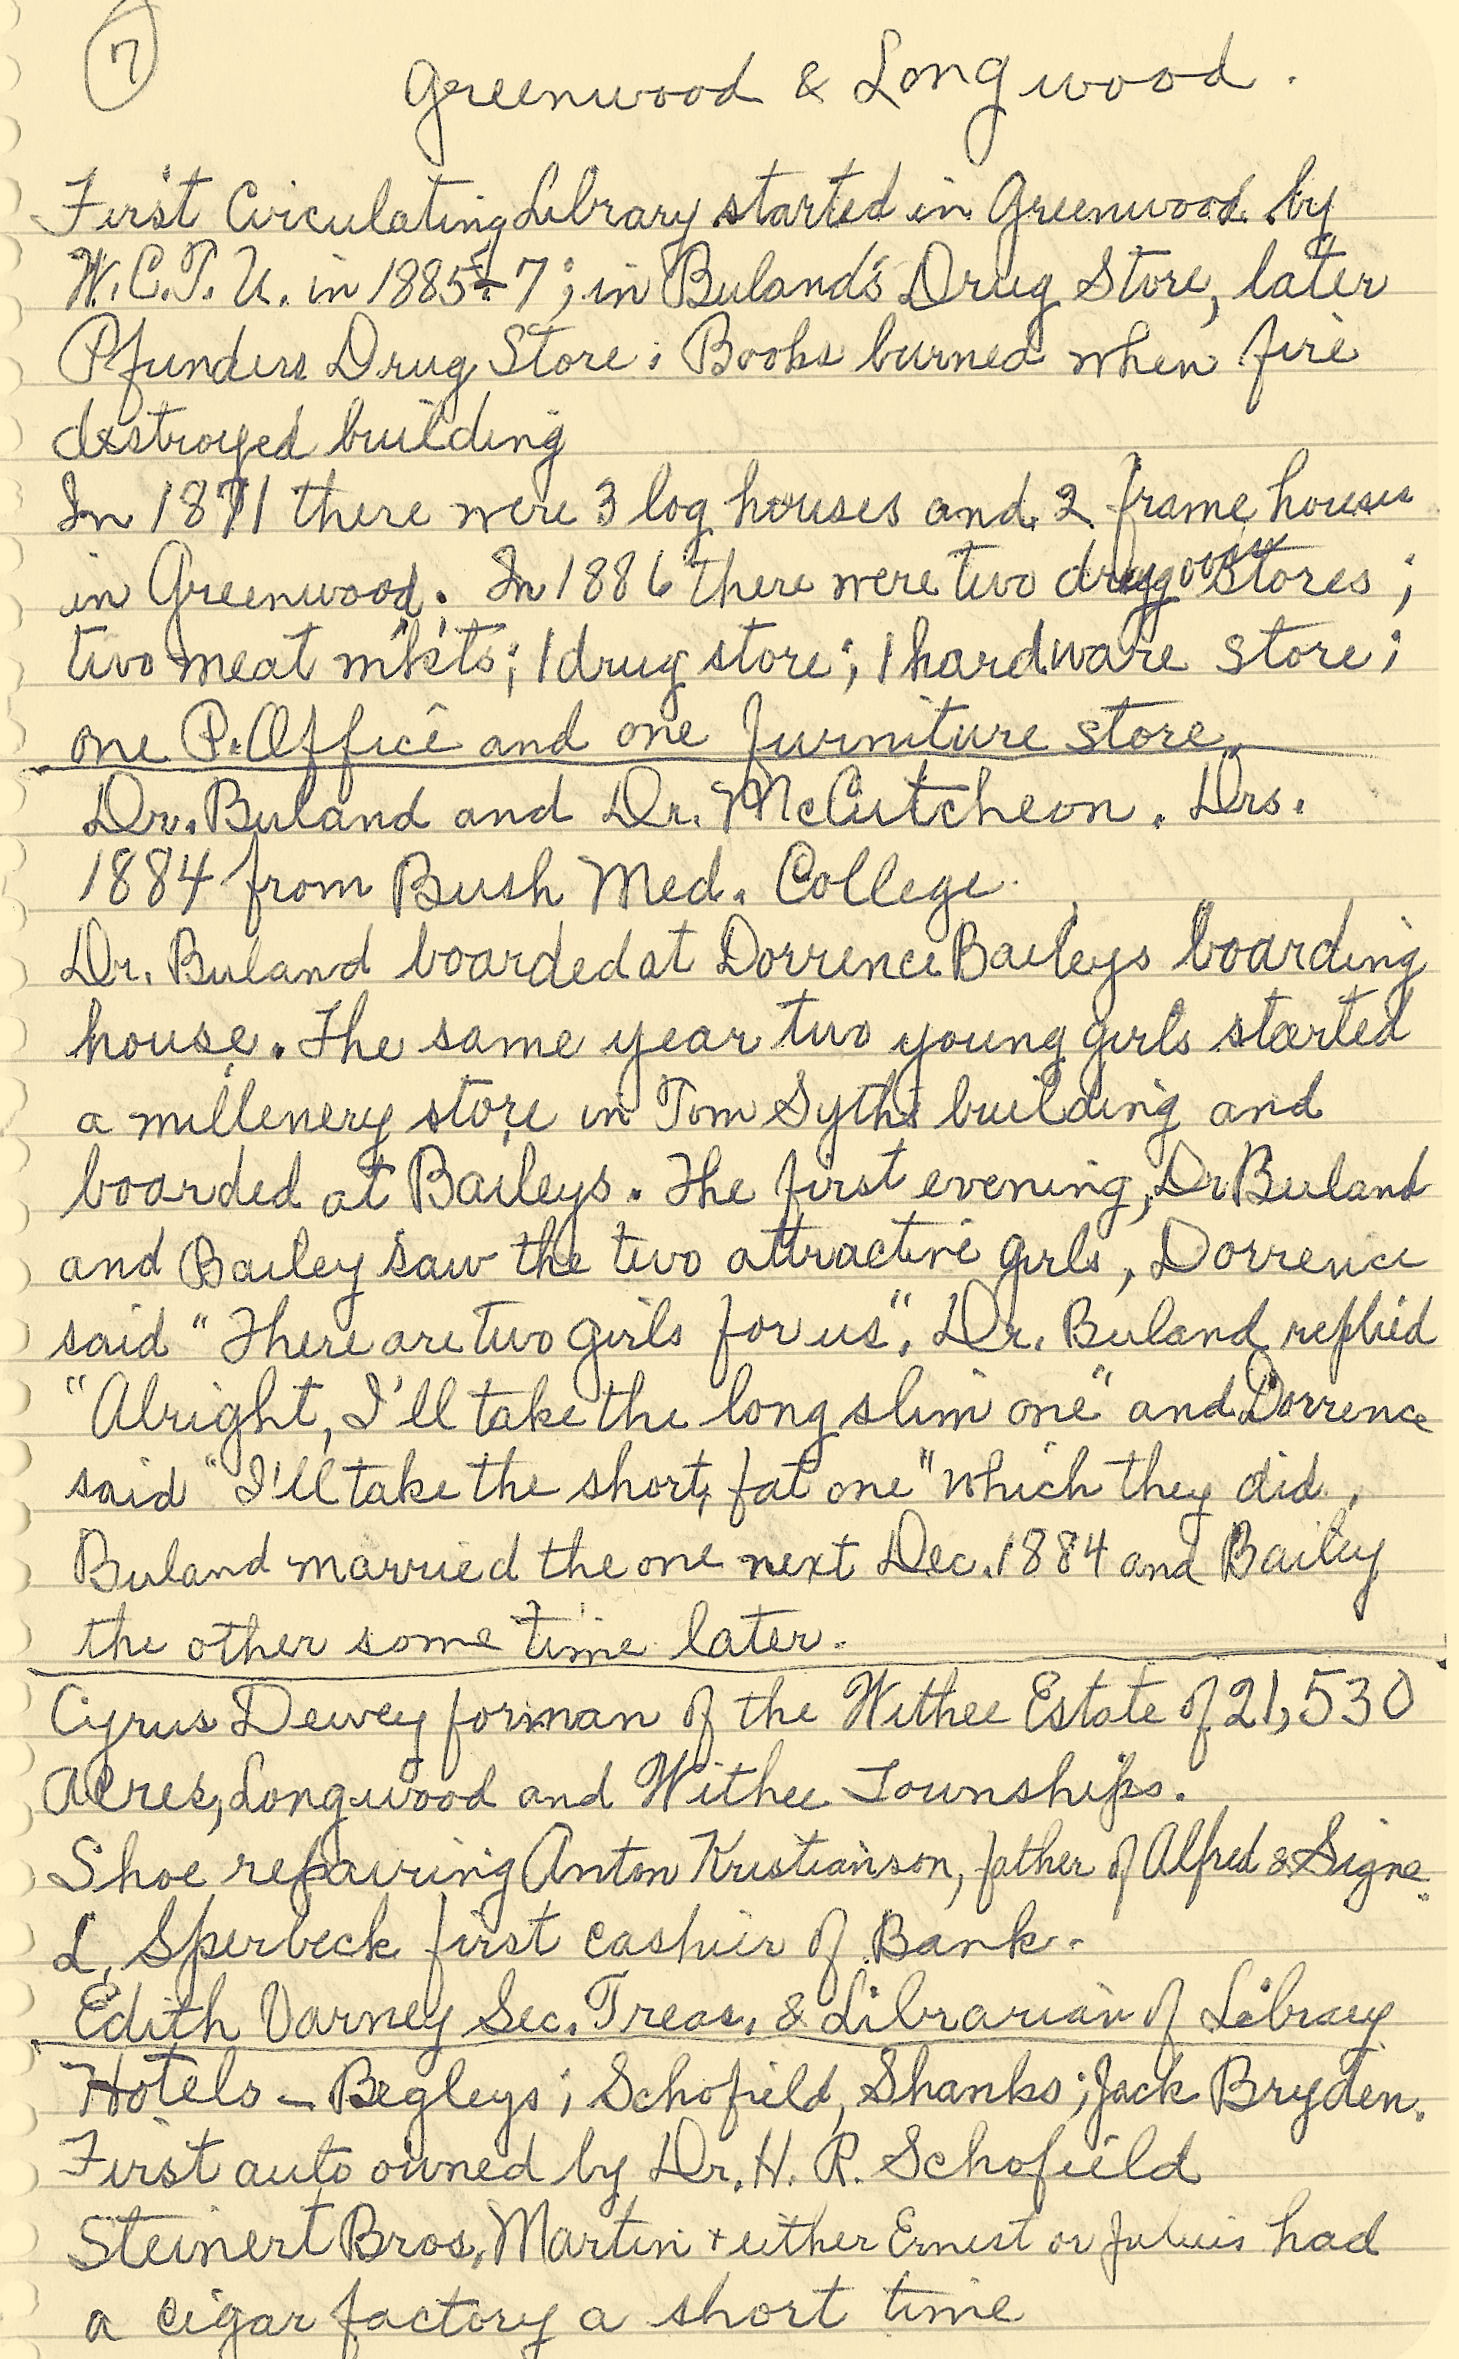 7
Greenwood & Longwood.
First Circulating Library started in Greenwood by
W.C.T.U. in 1885-7; in Buland's Drug Store, later
Pfunders Drug Store; Books burned when fire
destroyed building
In 1871 there were 3 log houses and 2 frame houses
in Greenwood. In 1886 there were two dry goods stores;
two meat m'k'ts; 1 drug store; 1 hardware store;
one P. Office and one furniture store.
Dr. Buland and Dr. McCutcheon. Drs.
1884 from Bush Med. College.
Dr. Buland boarded at Dorrence Baileys boarding
house. The same year two young girls started
a millenery store in Tom Syths building and
boarded at Baileys. The first evening, Dr Buland
and Bailey saw the two attractive girls, Dorrence
said "There are two girls for us". Dr. Buland replied
"Alright, I'll take the long slim one" and Dorrence
said "I'll take the short, fat one" which they did.
Buland married the one next Dec. 1884 and Bailey
the other some time later.
Cyrus Dewey forman of the Withee Estate of 21,530
Acres, Longwood and Withee Townships.
Shoe repairing Anton Kristianson, father of Alfred & Signe.
L. Sperbeck first cashier of Bank.
Edith Varney Sec. Treas. & Librarian of Library
Hotels - Begleys; Schofield, Shanks; Jack Bryden.
First auto owned by Dr. H. R. Schofield
Steinert Bros, Martin + either Ernest or Julius had
a cigar factory a short time